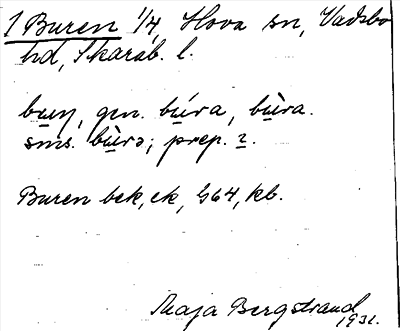 1 Buren 1/4, Hova sn, Vadsbo
hd, Skarab. l.
bu̲ṇ, gen. bú̲ra, bù̲ra.
sms. bù̲rə; prep. 2̲.
Buren bek, ek, G64, kb.
Maja Bergstrand
1931.